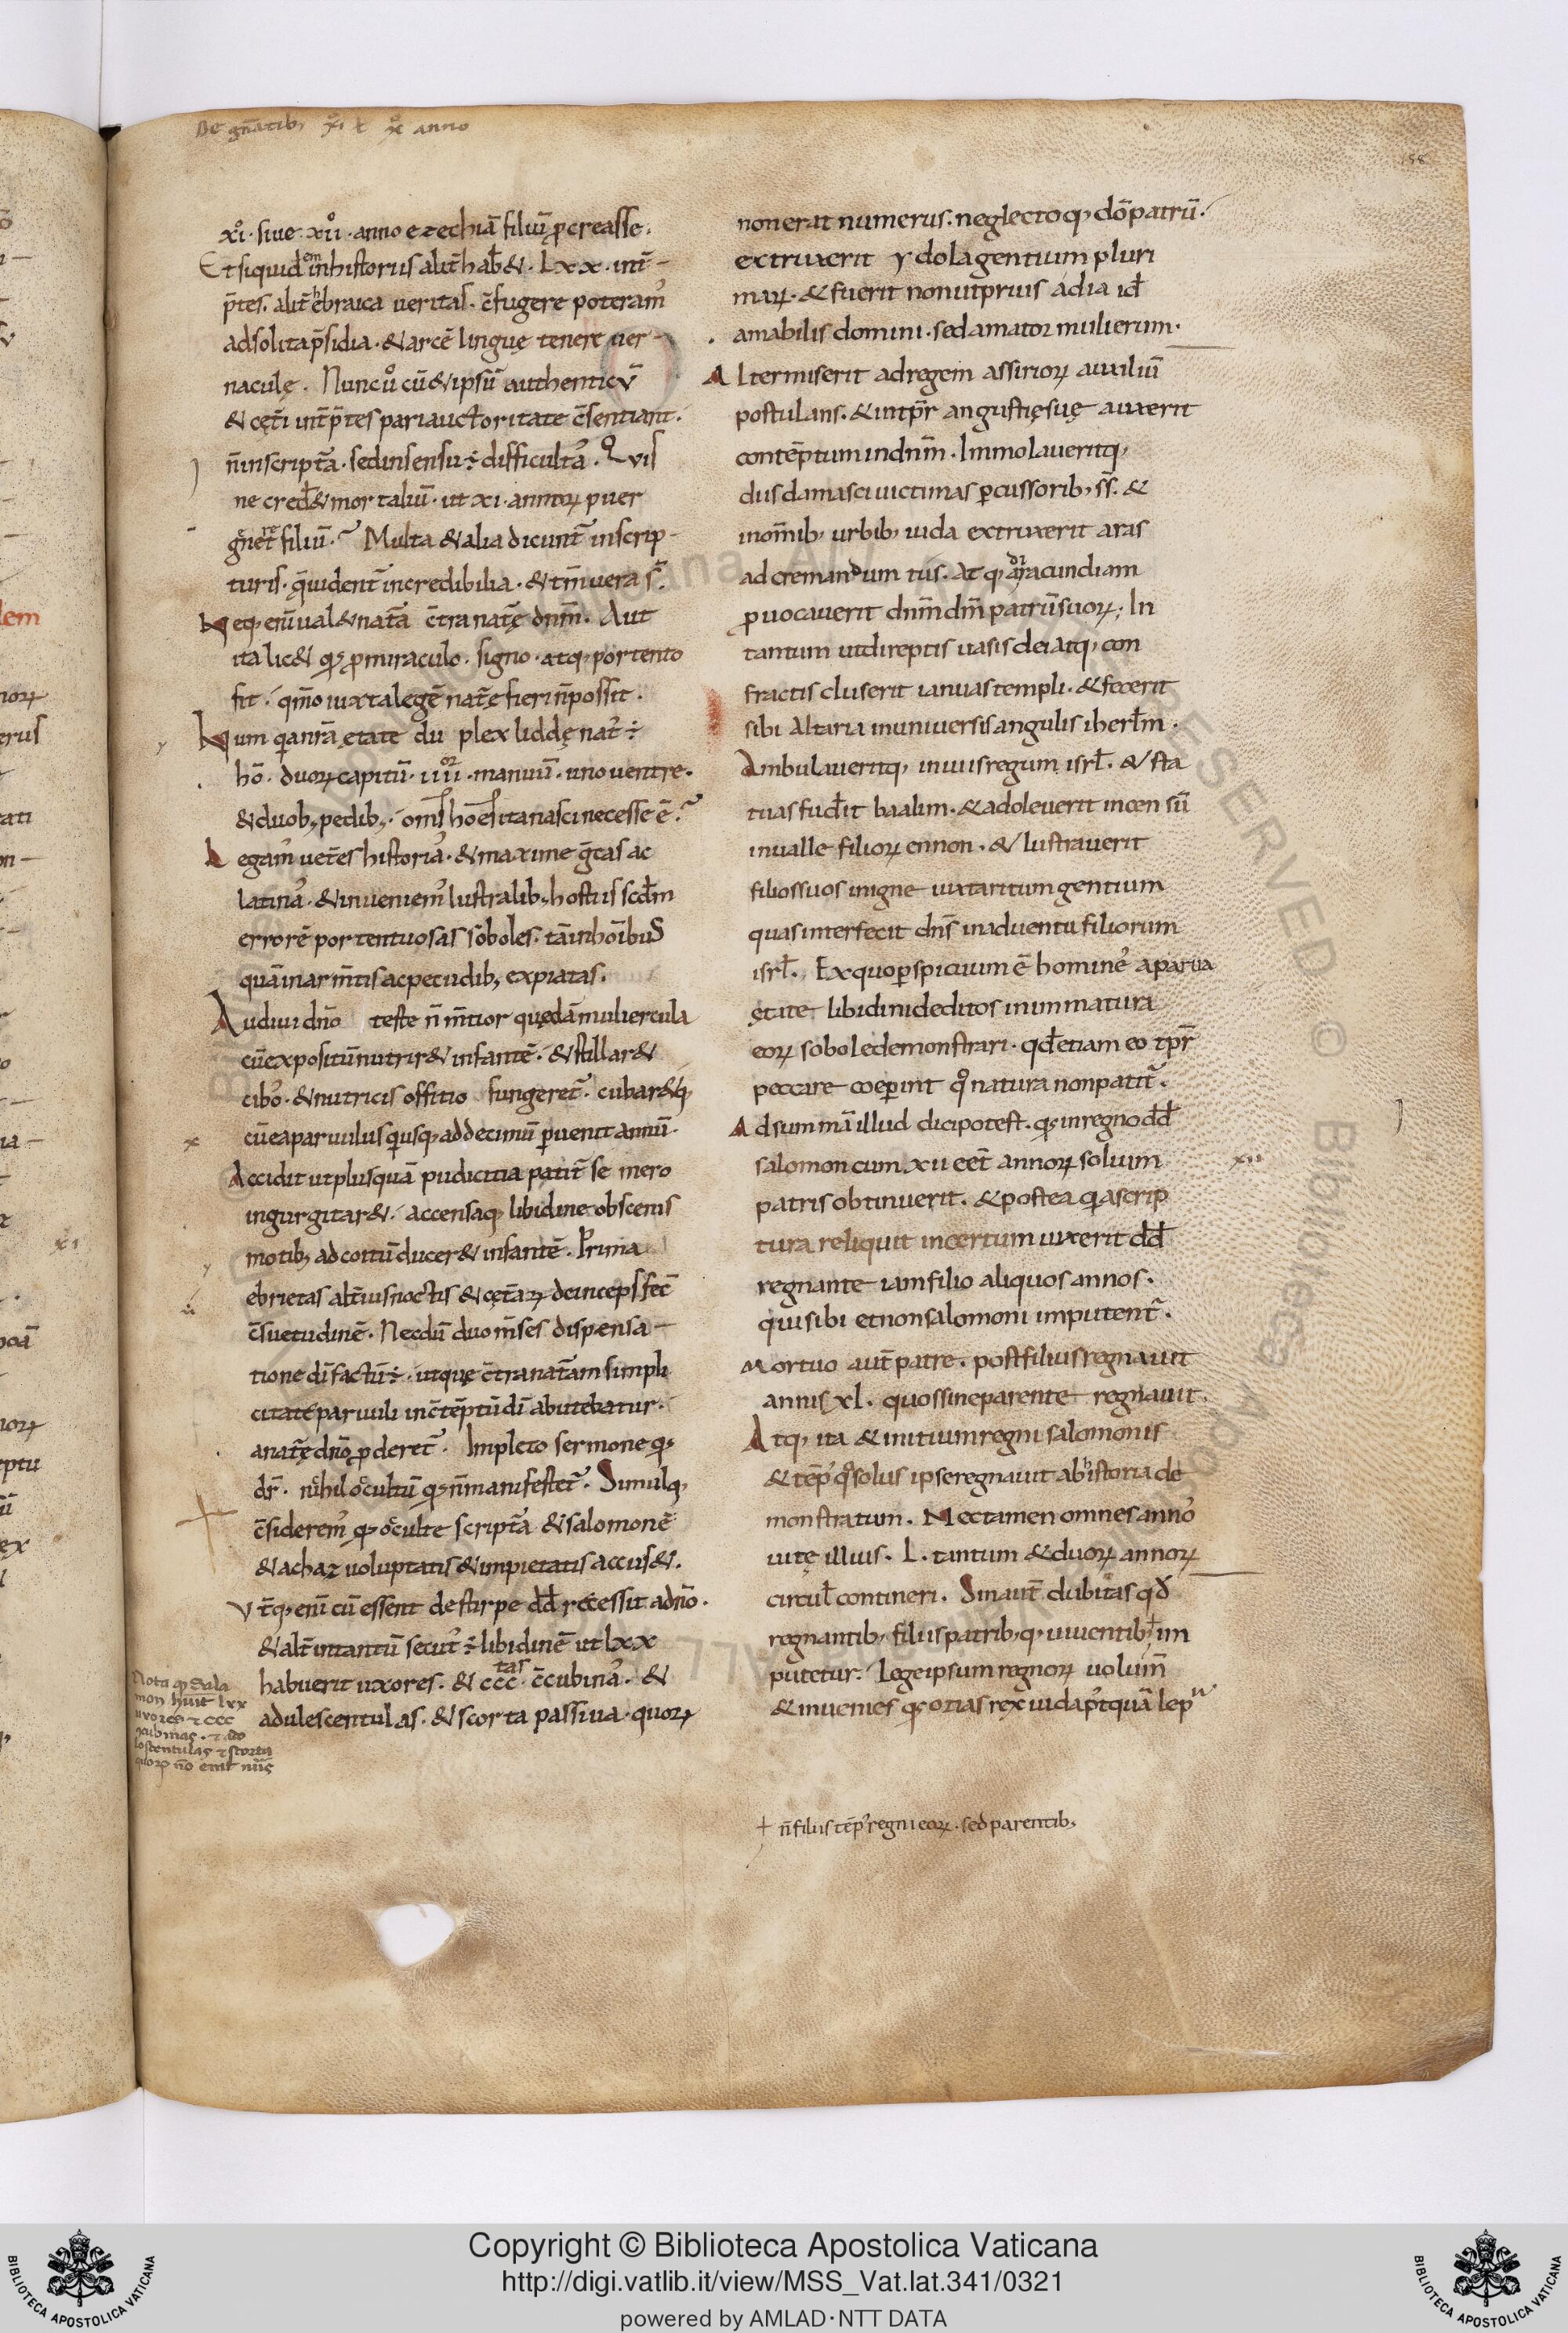 De gn̄atib; xi l x anno
158
xi. siue. xii. anno ezechiā filiū ꝓcreasse.
Et siquidem in historiis alit̄ hab&. Lxx. int̄
p̄tes. alit̄ hebraica ueritas. c̄fugere poteramꝰ
ad solita p̄sidia. & arcē linguę tenere uer
naculę. Nunc ů cū & ipsū authenticū
& cęt̄i int̄p̄tes pari auctoritate c̄sentiant.
n̄ in script̄a. sed in sensu ÷ difficultaꝰ. Quis
ne cred& mortaliū. ut xi. annorꝝ puer
gn̄eret filiū. Multa & alia dicunt̄ in scrip
turis. q̄ uident̄ incredibilia. & tm̄ uera s̄.
Neq; enī ual& nat̄a c̄tra nat̄ę dnm̄. Aut
ita lic& qꝫ ꝓ miraculo. signo. atq; portento
fit. qm̄o iuxta legē nat̄ę fieri n̄ possit.
Num q̄a nr̄a ętate duplex liddę natꝰ ÷
hō. duorꝝ capitū. iiii. manuū. uno uentre.
& duob; pedib;. om̄s hoēs ita nasci necesse ē.
Legamꝰ uet̄es historiaꝰ. & maxime g̃cas ac
latinaꝰ. & inueniemꝰ lustralib; hostiis scd̄m
errorē portentuosas soboles. tā in hoībus
quā in arm̄tis ac pecudib; expiatas.
Audiui dn̄o teste n̄ m̄tior quędā muliercula
cū expositū nutrir& infantē. & stillar&
ciboꝰ. & nutricis offitio fungeret̄. cubar&q;
cū ea paruulus qui usq; ad decimū ꝑuenit annū.
Accidit ut plus quā pudicitia patit̄ se mero
ingurgitar&. accensaq; libidine obscenis
motib; ad coitū ducer& infantē. Prima
ebrietas alt̄ius noctis & cęt̄arꝝ deinceps fec̄
c̄suetudinē. Necdū duo m̄ses dispensa
tione dī factū ÷. ut quę c̄tra nat̄am simpli
citate paruuli in c̄tēptū dī abutebatur.
a nat̄ę dn̄o ꝓderet̄. Impleto sermone qꝫ
dr̄. nihil occultū qꝫ n̄ manifestet̄. Simulq;
c̄sideremꝰ qꝫ occulte script̄a & salomonē
& achaz uoluptatis & impietatis accus&.
Vt̄q; enī cū essent de stirpe dd̄ recessit a dn̄o.
& alt̄ in tantū secutꝰ ÷ libidinē ut lxx
habuerit uxores. & ccctas. c̄cubinaꝰ. &
adulescentulas. & scorta passiua. quorꝝ
non erat numerus. neglectoq; dō patrū.
extruxerit ydola gentium pluri
marꝝ. & fuerit non ut prius adia id̄
amabilis domini. sed amator mulierum.
Alter miserit ad regem assiriorꝝ auxiliū
postulans. & int̄pr̄ angustię suę auxerit
contēptum in dnm̄. Immolaueritq;
dus damasci uictimas ꝑcussorib; ss̄. &
in om̄ib; urbib; iuda extruxerit aras
ad cremandum tus. Atq; ad iracundiam
ꝓuocauerit dnm̄ dm̄ patrū suorꝝ. In
tantum ut direptis uasis dei atq; con
fractis cluserit ianuas templi. & fecerit
sibi Altaria in uniuersis angulis iherl̄m.
Ambulaueritq; in uiis regum isrl̄. & sta
tuas fud̄it baalim. & adoleuerit incensū
in ualle filiorꝝ ennon. & lustrauerit
filios suos in igne iuxta ritum gentium
quas interfecit dn̄s in aduentu filiorum
isrl̄. Ex quo ꝑspicuum ē homineꝰ a parua
ętate libidini deditos in inmatura
eorꝝ sobole demonstrari. qd̄ etiam eo tp̄r̄
peccare coeperint qo natura non patit̄.
Ad summā illud dici potest. qꝫ in regno dd̄
salomon cum xii eēt annorꝝ solium
patris obtinuerit. & postea q̄a scrip
tura reliquit incertum uixerit dd̄
regnante iam filio aliquos annos.
qui sibi et non salomoni imputent̄.
Mortuo aut̄ patre. post filius regnauit
annis xl. quos sine parente regnauit.
Atq; ita & initium regni salomonis
& tēpꝰ qo solus ipse regnauit ab historia de
monstratum. Nec tamen omnes annoꝰ
uitę illius. L. tantum & duorꝝ annorꝝ
circul̄ contineri. Sin aut̄ dubitas qd̄
regnantib; filiis patrib;q; uiuentib; im
putetur. Lege ipsum regnorꝝ uolum̄
& inuenies qꝫ ozias rex iuda p̄tquā lep
+ n̄ filiis tēpꝰ regni eorꝝ. sed parentib;
xii
xi
Nota qꝫ Sala
mon huit lxx
uxores et ccc
cubinas. et ado
lescentulas et scorta
quorꝝ nō erat nūs
Copyright © Biblioteca Apostolica Vaticana
http://digi.vatlib.it/view/MSS_Vat.lat.341/0321
powered by AMLAD·NTT DATA
BIBLIOTECA APOSTOLICA VATICANA
BIBLIOTECA APOSTOLICA VATICANA